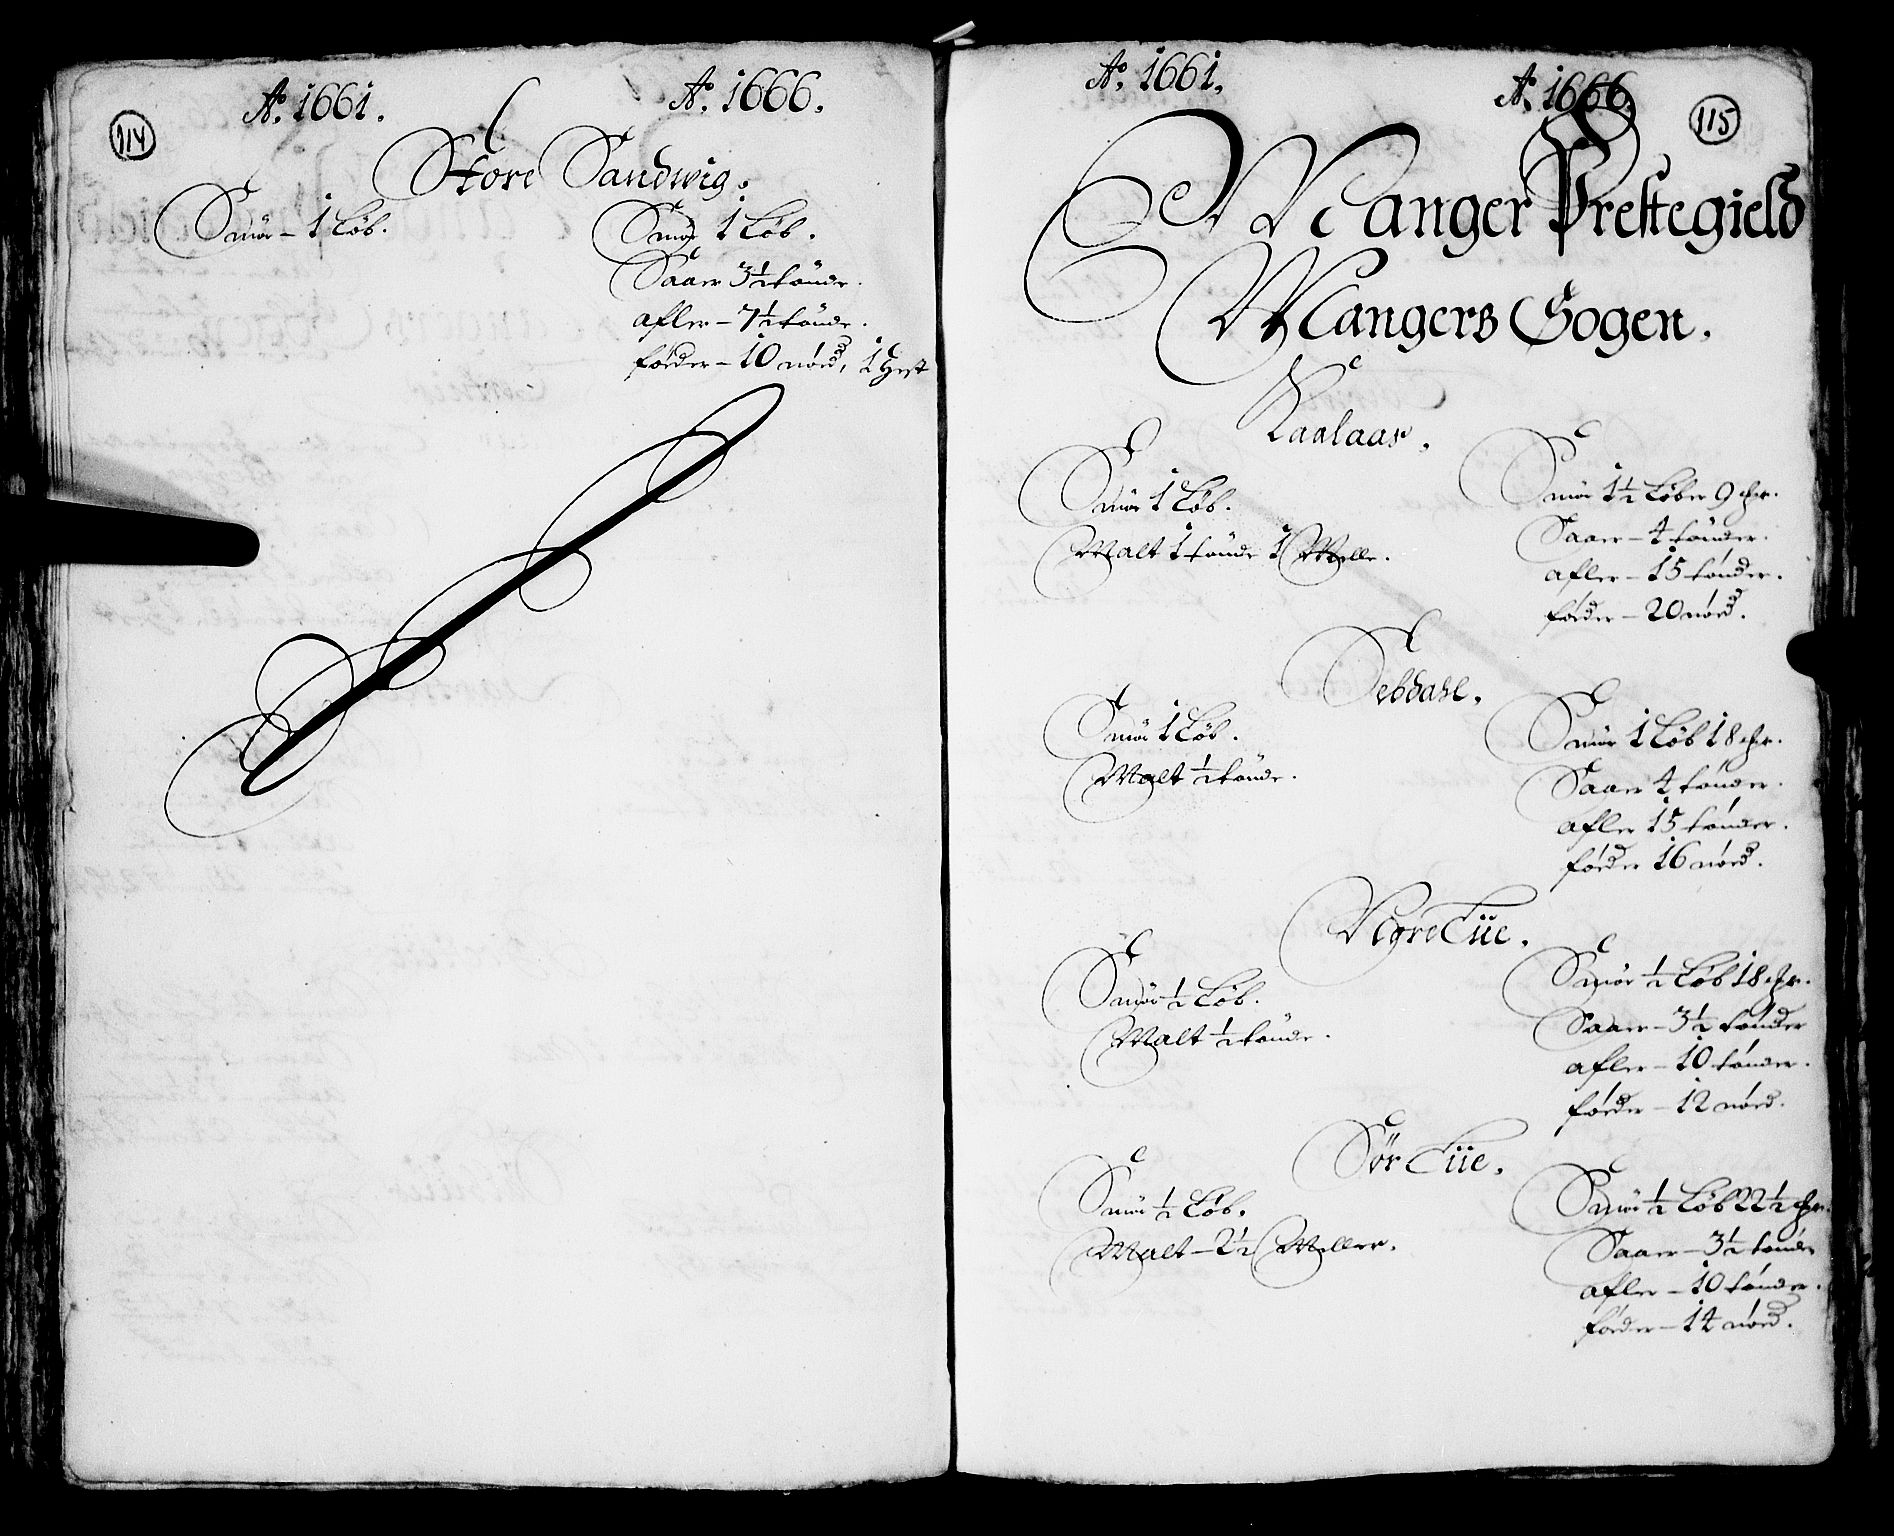 114
Ao. 1661.
Ao. 1666.
Store Sandwig.
Smör – 1 Løb.
Smör 1 Løb.
Saaer 3½ tönde.
afler – 7½ tönde.
føeder – 10 nöed, 1 Hest
115
Ao. 1661.
Ao. 1666.
Manger Prestegield
Mangers Sogen.
Kaalaas.
Smör 1 Løb.
Malt 1 tönde 1 Melle.
Smör 1½ Løber 9
Saaer – 4 tönder.
afler – 15 tönder.
føder – 20 nöed.
Sebdahl.
Smör 1 Løb.
Malt ½ tönde.
Smör 1 Løb 18
Saaer 4 tönder.
afler 15 tönder.
føeder 16 nöed.
Nore Tüe.
Smör ½ Løb.
Malt ½ tönde.
Smör ½ Løb 18
Saaer – 3½ tönder
afler – 10 tönder.
føeder – 12 nöed.
Sør Tüe.
Smör ½ Løb.
Malt – 2½ Meller.
Smör ½ Løb 22½
Saaer – 3½ tönde
afler – 10 tönder.
føeder – 14 nöed.